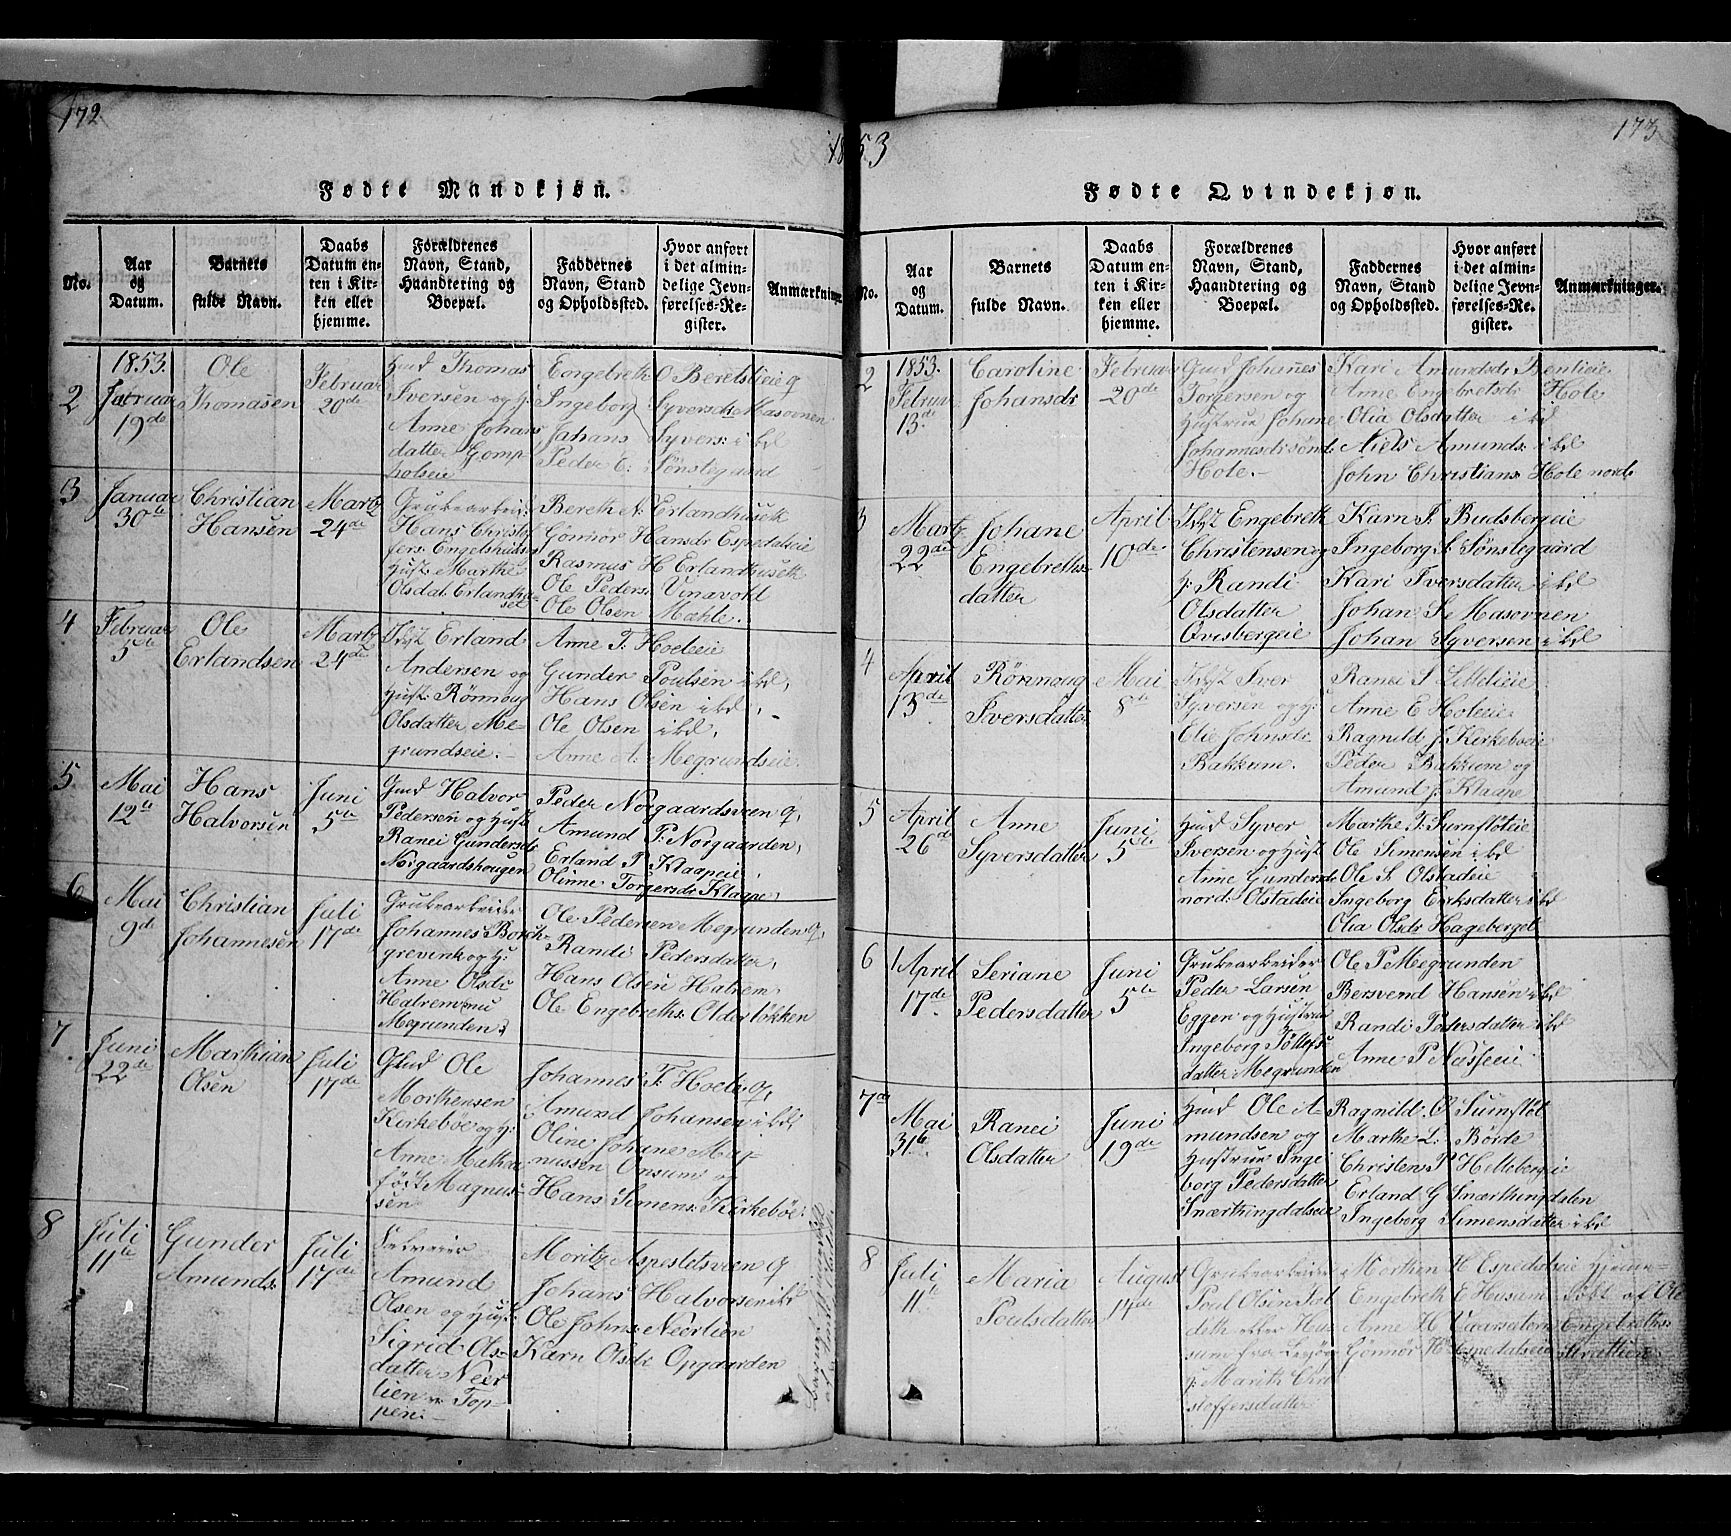 172
1853
173
Fødte Mandkjøn.
No.
Aar og Datum.
Barnets fulde Navn.
Daabs Datum enten i Kirken eller hjemme.
Forældrenes Navn, Stand, Haandtering og Boepæl.
Faddernes Navn, Stand og Opholdssted.
Hvor anført i det almindelige Jevnførelses-Register.
Anmærkninger.
2
1853.
Januar
19de
Ole
Thomasen
Februar
20de
Gmd Thomas
Iversen og h:
Anne Johans
datter Gomp
holseie
Engebreth O Berelslieie q
Ingeborg Syversdr Masovnen
Johans Syvers: ibd
Peder E: Sønstegaard
3
Januar
30te
Christian
Hansen
Martz
24de
Grubearbeid:
Hans Christof
fers: Engelshus
Hust: Marthe
Olsdat. Erlandhu
set
Bereth N: Erlandhuseth
Gönnor Hansdr Espedalseie
Rasmus H Erlandhuseth
Ole Peders: Vinavokl
Ole Olsen Mæhle.
4
Februar
5te
Ole
Erlandsen
Martz
24de
Inst Erland
Andersen og
Hust: Rønnoug
Olsdatter Me-
grundseie.
Anne T: Hoeleie
Gunder Poulsen ibd,
Hans Olsen ibd,
Ole Olsen ibd,
Anne A: Megrundseie.
5
Mai
12te
Hans
Halvorsen
Juni
5te
Gmd Halvor
Pedersen og Hust:
Ranei Gundersdr
Norgaardshougen
Peder Norgaardsveen q,
Amund P: Norgaarden,
Erland P Klaapeie,
Olinne Torgersdr Klaape
6
Mai
9de
Christian
Johannesen
Juli
17de
Grubearbeider
Johannes Borch-
grevink og h:
Anne Olsdr
Halrem nu
Megrunden
Ole Pedersen Megrunden q,
Randi Pedersdatter,
Hans Olsen Halrem
Ole Engebreths: Olderløkken
7
Juni
22de
Mathian
Olsen
Juli
17de
Gmd Ole
Morthensen
Kirkebøe og h:
Anne Mathea
født Magnus-
sen
Johannes T: Hoele q,
Amund Johansen ibd,
Oline Johane Mag-
nussen Onsum og
Hans Simens: Kirkebøe.
8
Juli
11te
Gunder
Amunds:
Juli
17de
Amund
Olsen og Hust:
Sigrid Ols-
datter Neer
lien v: Top-
pen
Moritz Aspesletsveen q
Johans Halvorsen ibd
Ole Johns: Neerlien
Karn Olsdr Opgaarden
Fødte Qvindekjøn.
No.
Aar og Datum.
Barnets fulde Navn.
Daabs Datum enten i Kirken eller hjemme.
Forældrenes Navn, Stand, Haandtering og Boepæl.
Faddernes Navn, Stand og Opholdssted.
Hvor anført i det almindelige Jevnførelses-Register.
Anmærkninger.
2
1853.
Februar
13de
Caroline
Johansdr
Februar
20de
Gmd Johannes
Torgersen og
Hustrue Johane
Johannesdr sønd:
Hole.
Kari Amundsdr Bentieie
Anne Engebretsdr Hole
Olia Olsdatter ibd
Niels Amunds: ibd
John Christians: Hole nordr
3
Martz
22de
Johane
Engebreths-
datter
April
10de
Inst Engebreth
Christensen og
h: Randi
Olsdatter
Qvisbergeie
Karn I. Budsbergeie
Ingeborg S: Sønstegaard
Kari Iversdatter ibd
Johan S. Masovnen
Johan Syversen ibd
4
April
13de
Rønnoug
Iversdatter
Mai
8de
Inst Iver
Syversen og h:
Elie Johnsdr
Bakkum.
Ranei I Lillelieie
Anne E Holeeie
Ragnild J. Kirkebøeie
Peder Bakkum og
Amund J. Klaape
5
April
26de
Anne
Syversdatter
Juni
5te
Gmd Syver
Iversen og Hust
Anne Gundersdr
nord: Olstadeie
Marthe I: Surnfløteie
Ole Simensen ibd
Ole S. Olstadeie
Ingeborg Eriksdatter ibd
Olia Olsdr Hageberget
6
April
17de
Seriane
Pedersdatter
Juni
5te
Grubearbeider
Peder Larsen
Eggen og Hustrue
Ingeborg Tollefs
datter Megrunden
Ole P Megrunden
Bersvend Hansen ibd
Randi Pedersdatter ibd
Anne P Næsseie
7de
Mai
31te
Ranei
Olsdatter
Juni
19de
Gmd Ole A-
mundsen og
Hustrue Inge
borg Pedersdatter
Snærthingdalseie
Ragnild: O Surnfløt
Marthe L: Börde
Christen P Hellebergeie
Erland G Snærthingdalen
Ingeborg Simensdatter ibd
8
Juli
11te
Maria
Poulsdatter
August
14de
Grubearbeider
Poul Olsen
deth eller Hu
sum fra
h: Marith Chri
stoffersdatter
Morthen H Espedalseie
Engebreth E Husum
Anne H Vaarsætern
Gönnør H Espedalseie
Hjemme-
døbt af Ole
Engebreths: